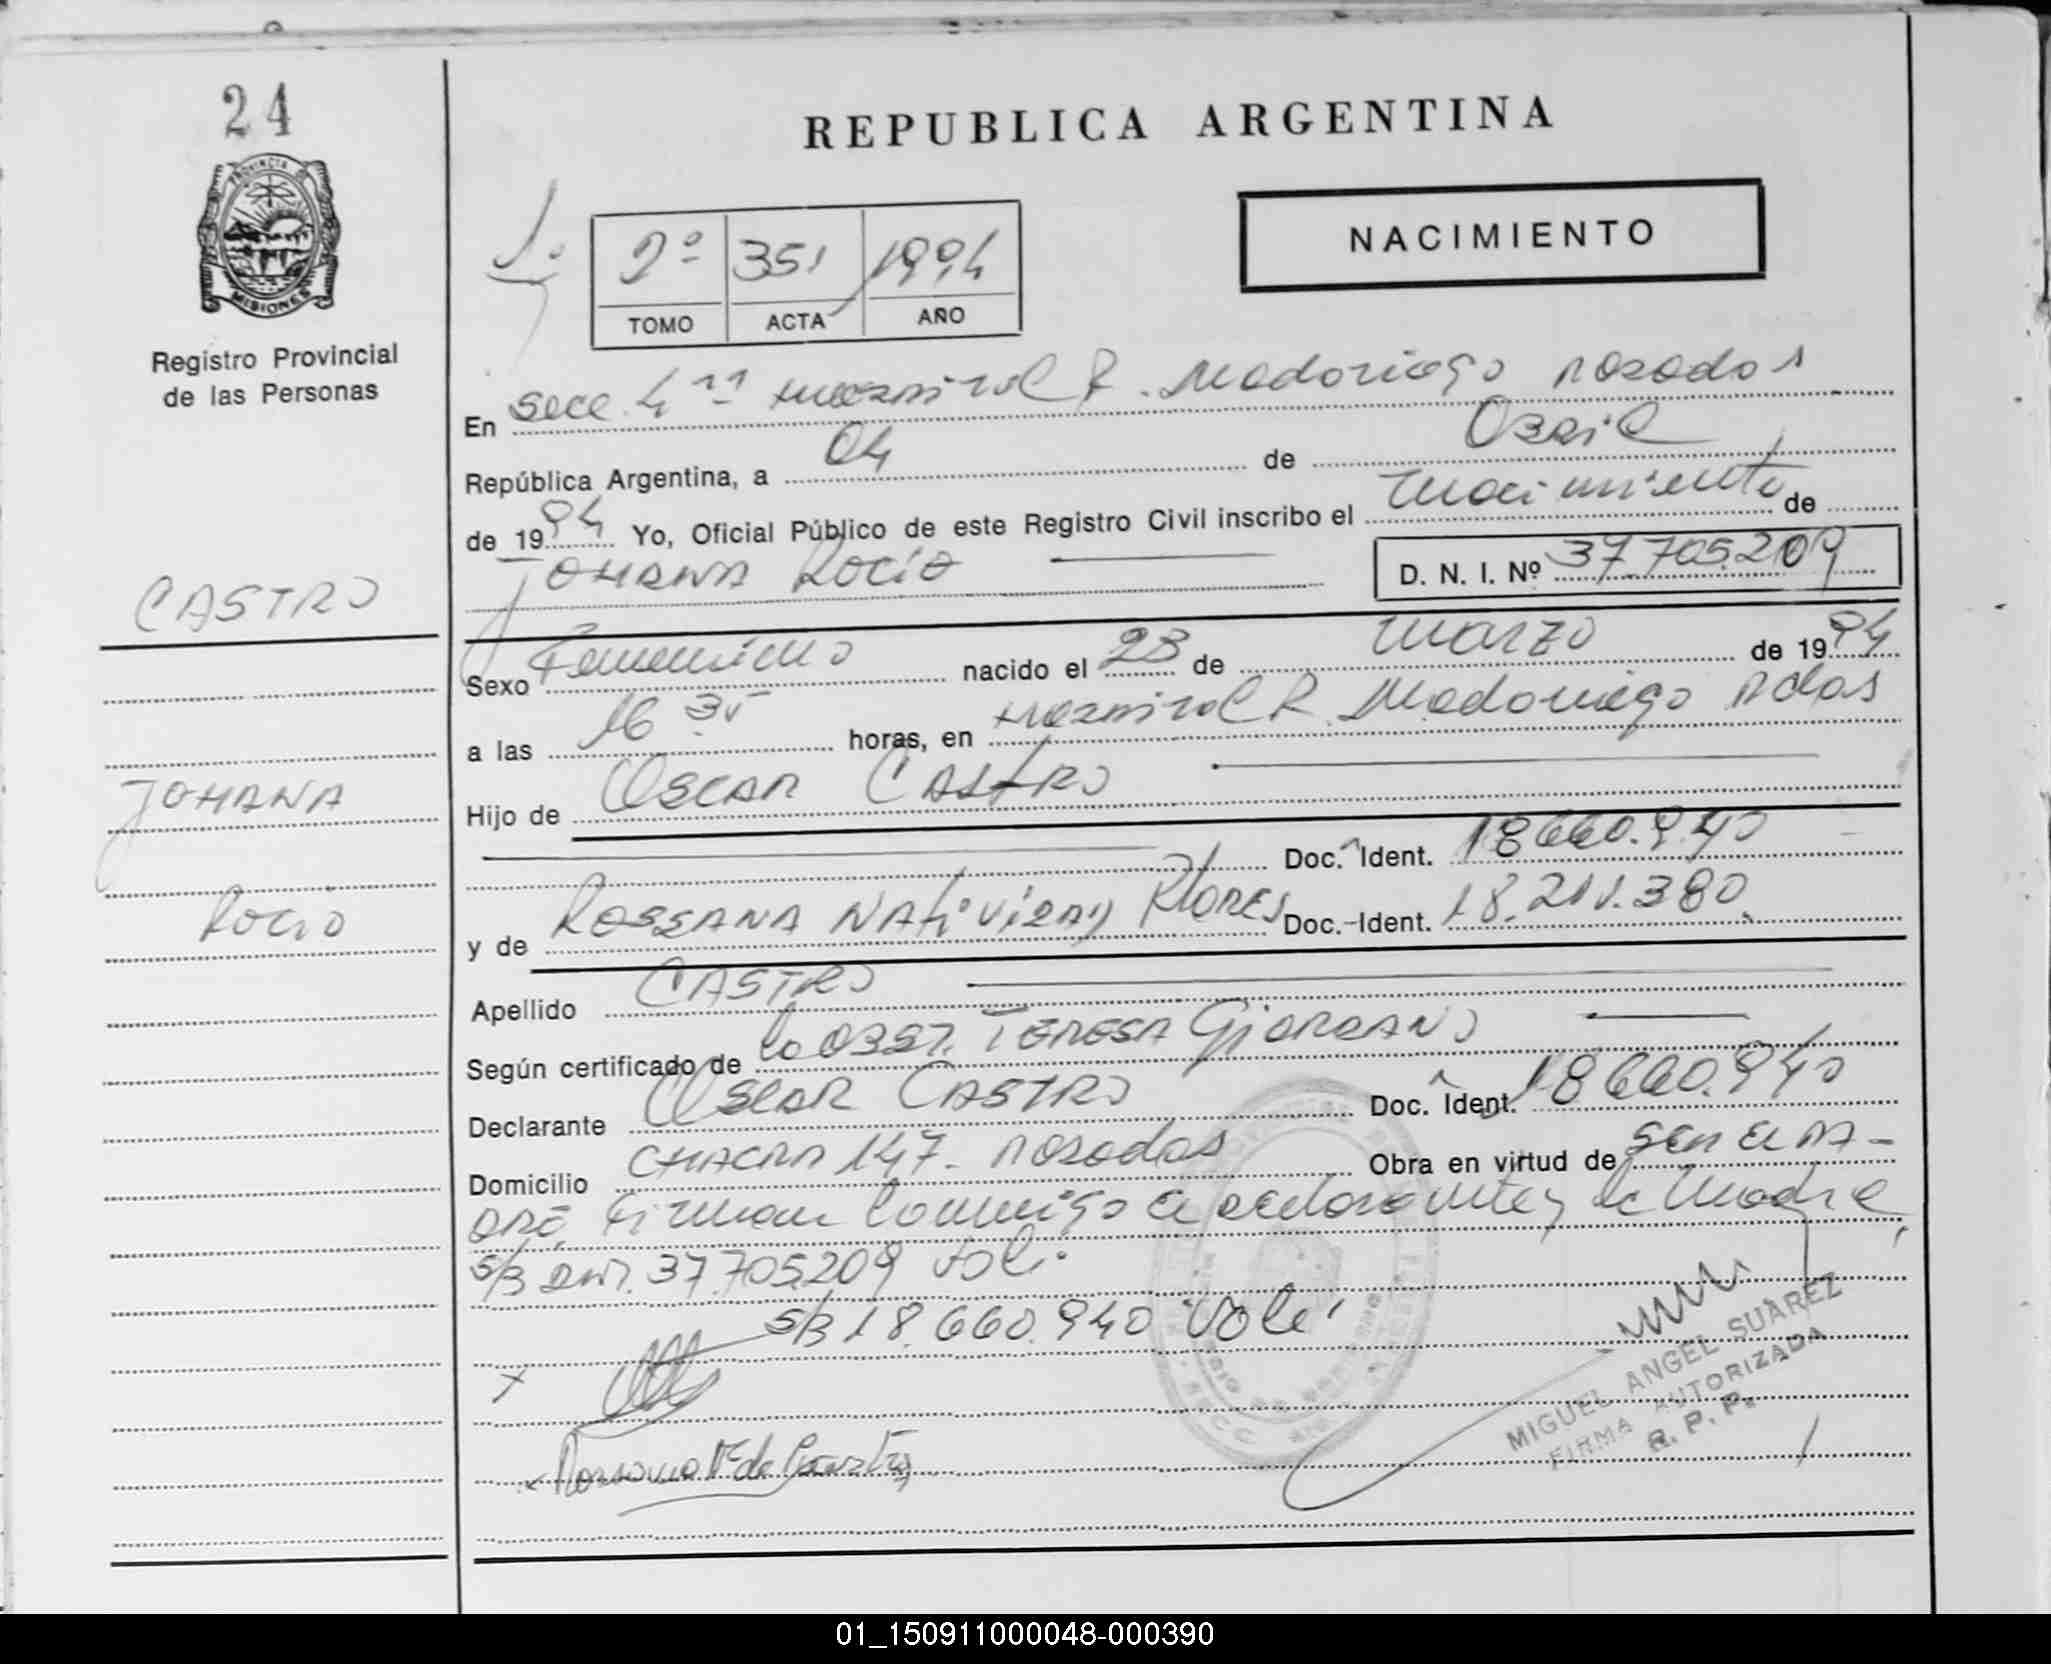 24
PROVINCIA DE
MISIONES
Registro Provincial
de las Personas
REPUBLICA ARGENTINA
NACIMIENTO
2º 351 1994
TOMO ACTA AÑO
En Secc. 4ta Hospital R. Madariaga Posadas
República Argentina, a 04 de Abril
de 1994 Yo, Oficial Público de este Registro Civil inscribo el Nacimiento de
JOHANA ROCIO D. N. I. Nº 37.705.209
CASTRO
Sexo Femenino nacido el 23 de Marzo de 1994
a las 16 35 horas, en Hospital R. Madariaga Pdas
JOHANA
Hijo de OSCAR CASTRO
Doc. Ident. 18660.940
ROCIO
y de ROSSANA NATIVIDAD FLORES Doc. Ident. 18.211.380
Apellido CASTRO
Según certificado de la OBST. TERESA GIORDANO
Declarante OSCAR CASTRO Doc. Ident. 18660.940
Domicilio CHACRA 147 - Posadas Obra en virtud de SER EL PA-
DRE, Firman conmigo el declarante y la Madre
S/B DNI. 37.705.209 Vale.
S/B 18.660.940 Vale
x
x Rossana F. de Castro
MIGUEL ANGEL SUAREZ
FIRMA AUTORIZADA
R. P. P.
01_150911000048-000390